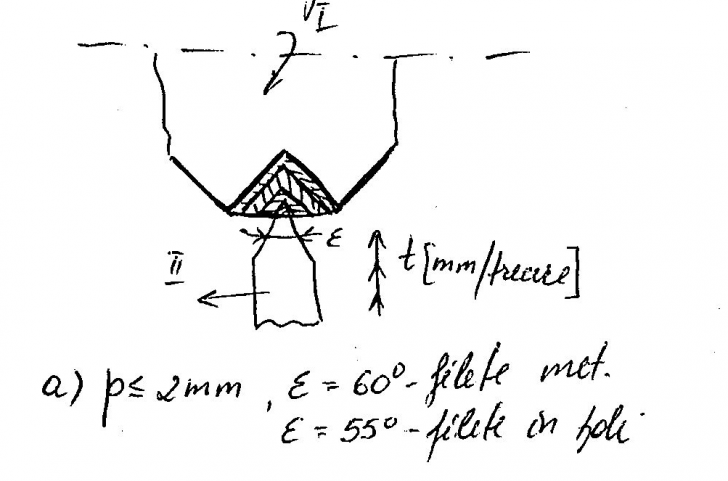 I
ε
II
t [mm/trecere]
a) p ≤ 2mm, ε = 60° - filete met.
ε = 55° - filete in toli